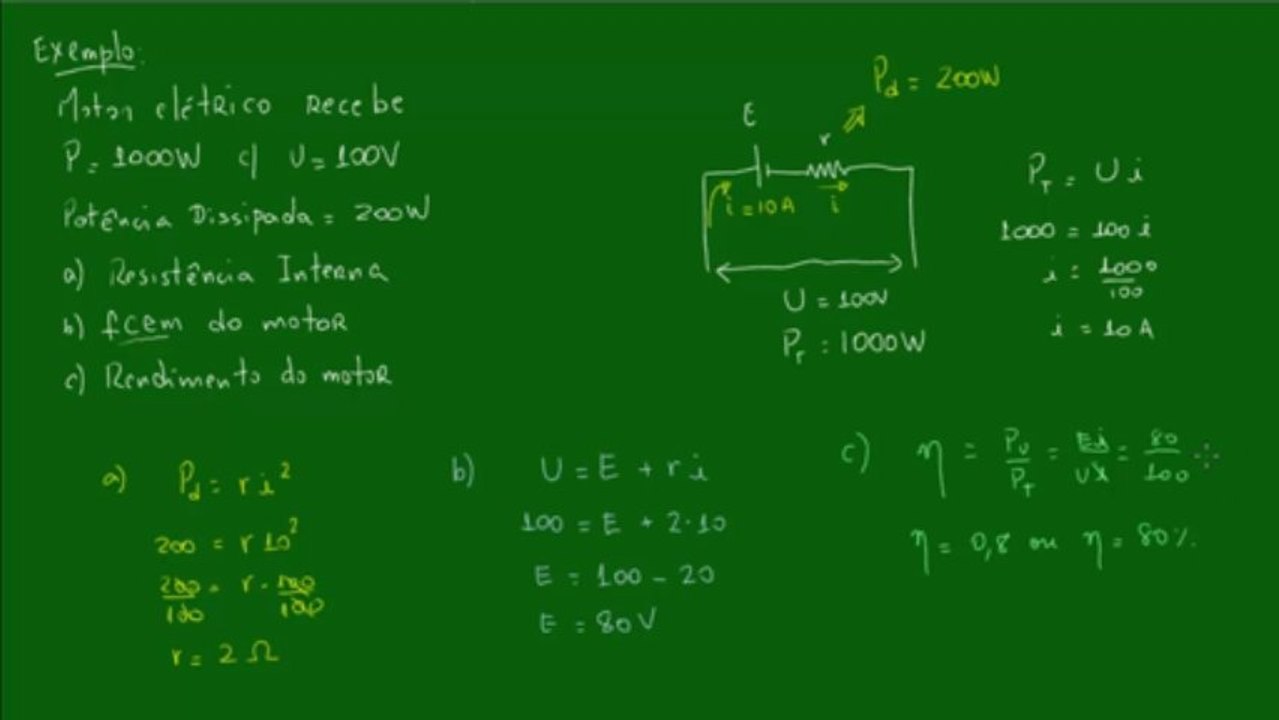 Exemplo:
Motor elétrico recebe
P = 1000W c/ U = 100V
Potência Dissipada = 200W
a) Resistência Interna
b) fcem do motor
c) Rendimento do motor
Pd = 200W
E
r
i = 10A
i
U = 100V
PT : 1000W
PT = U i
1000 = 100 i
i = 1000/100
i = 10 A
a) Pd = r i²
200 = r 10²
200/100 = r · 100/100
r = 2 Ω
b) U = E + r i
100 = E + 2·10
E = 100 - 20
E = 80V
c) η = PU/PT = Ei/Ui = 80/100
η = 0,8 ou η = 80%